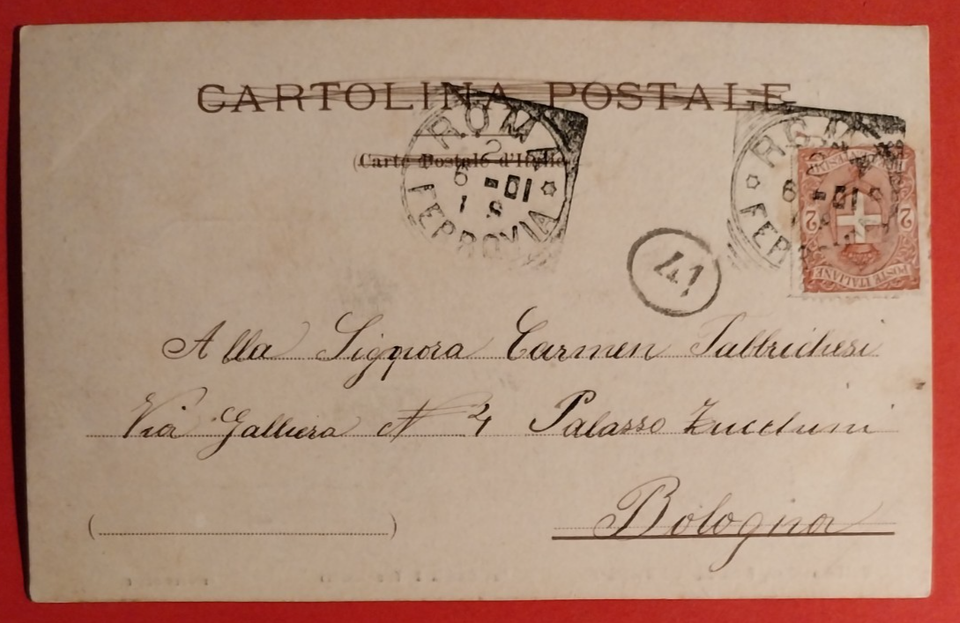 CARTOLINA POSTALE
(Carte Postale d'Italie)
ROMA
FERROVIA
2
6 - 01
1 S
ROMA
6 - 01
S
2 2
POSTE ITALIANE
41
Alla Signora Carmen Fabbrichesi
Via Galliera N 4 Palasso Zucchini
Bologna